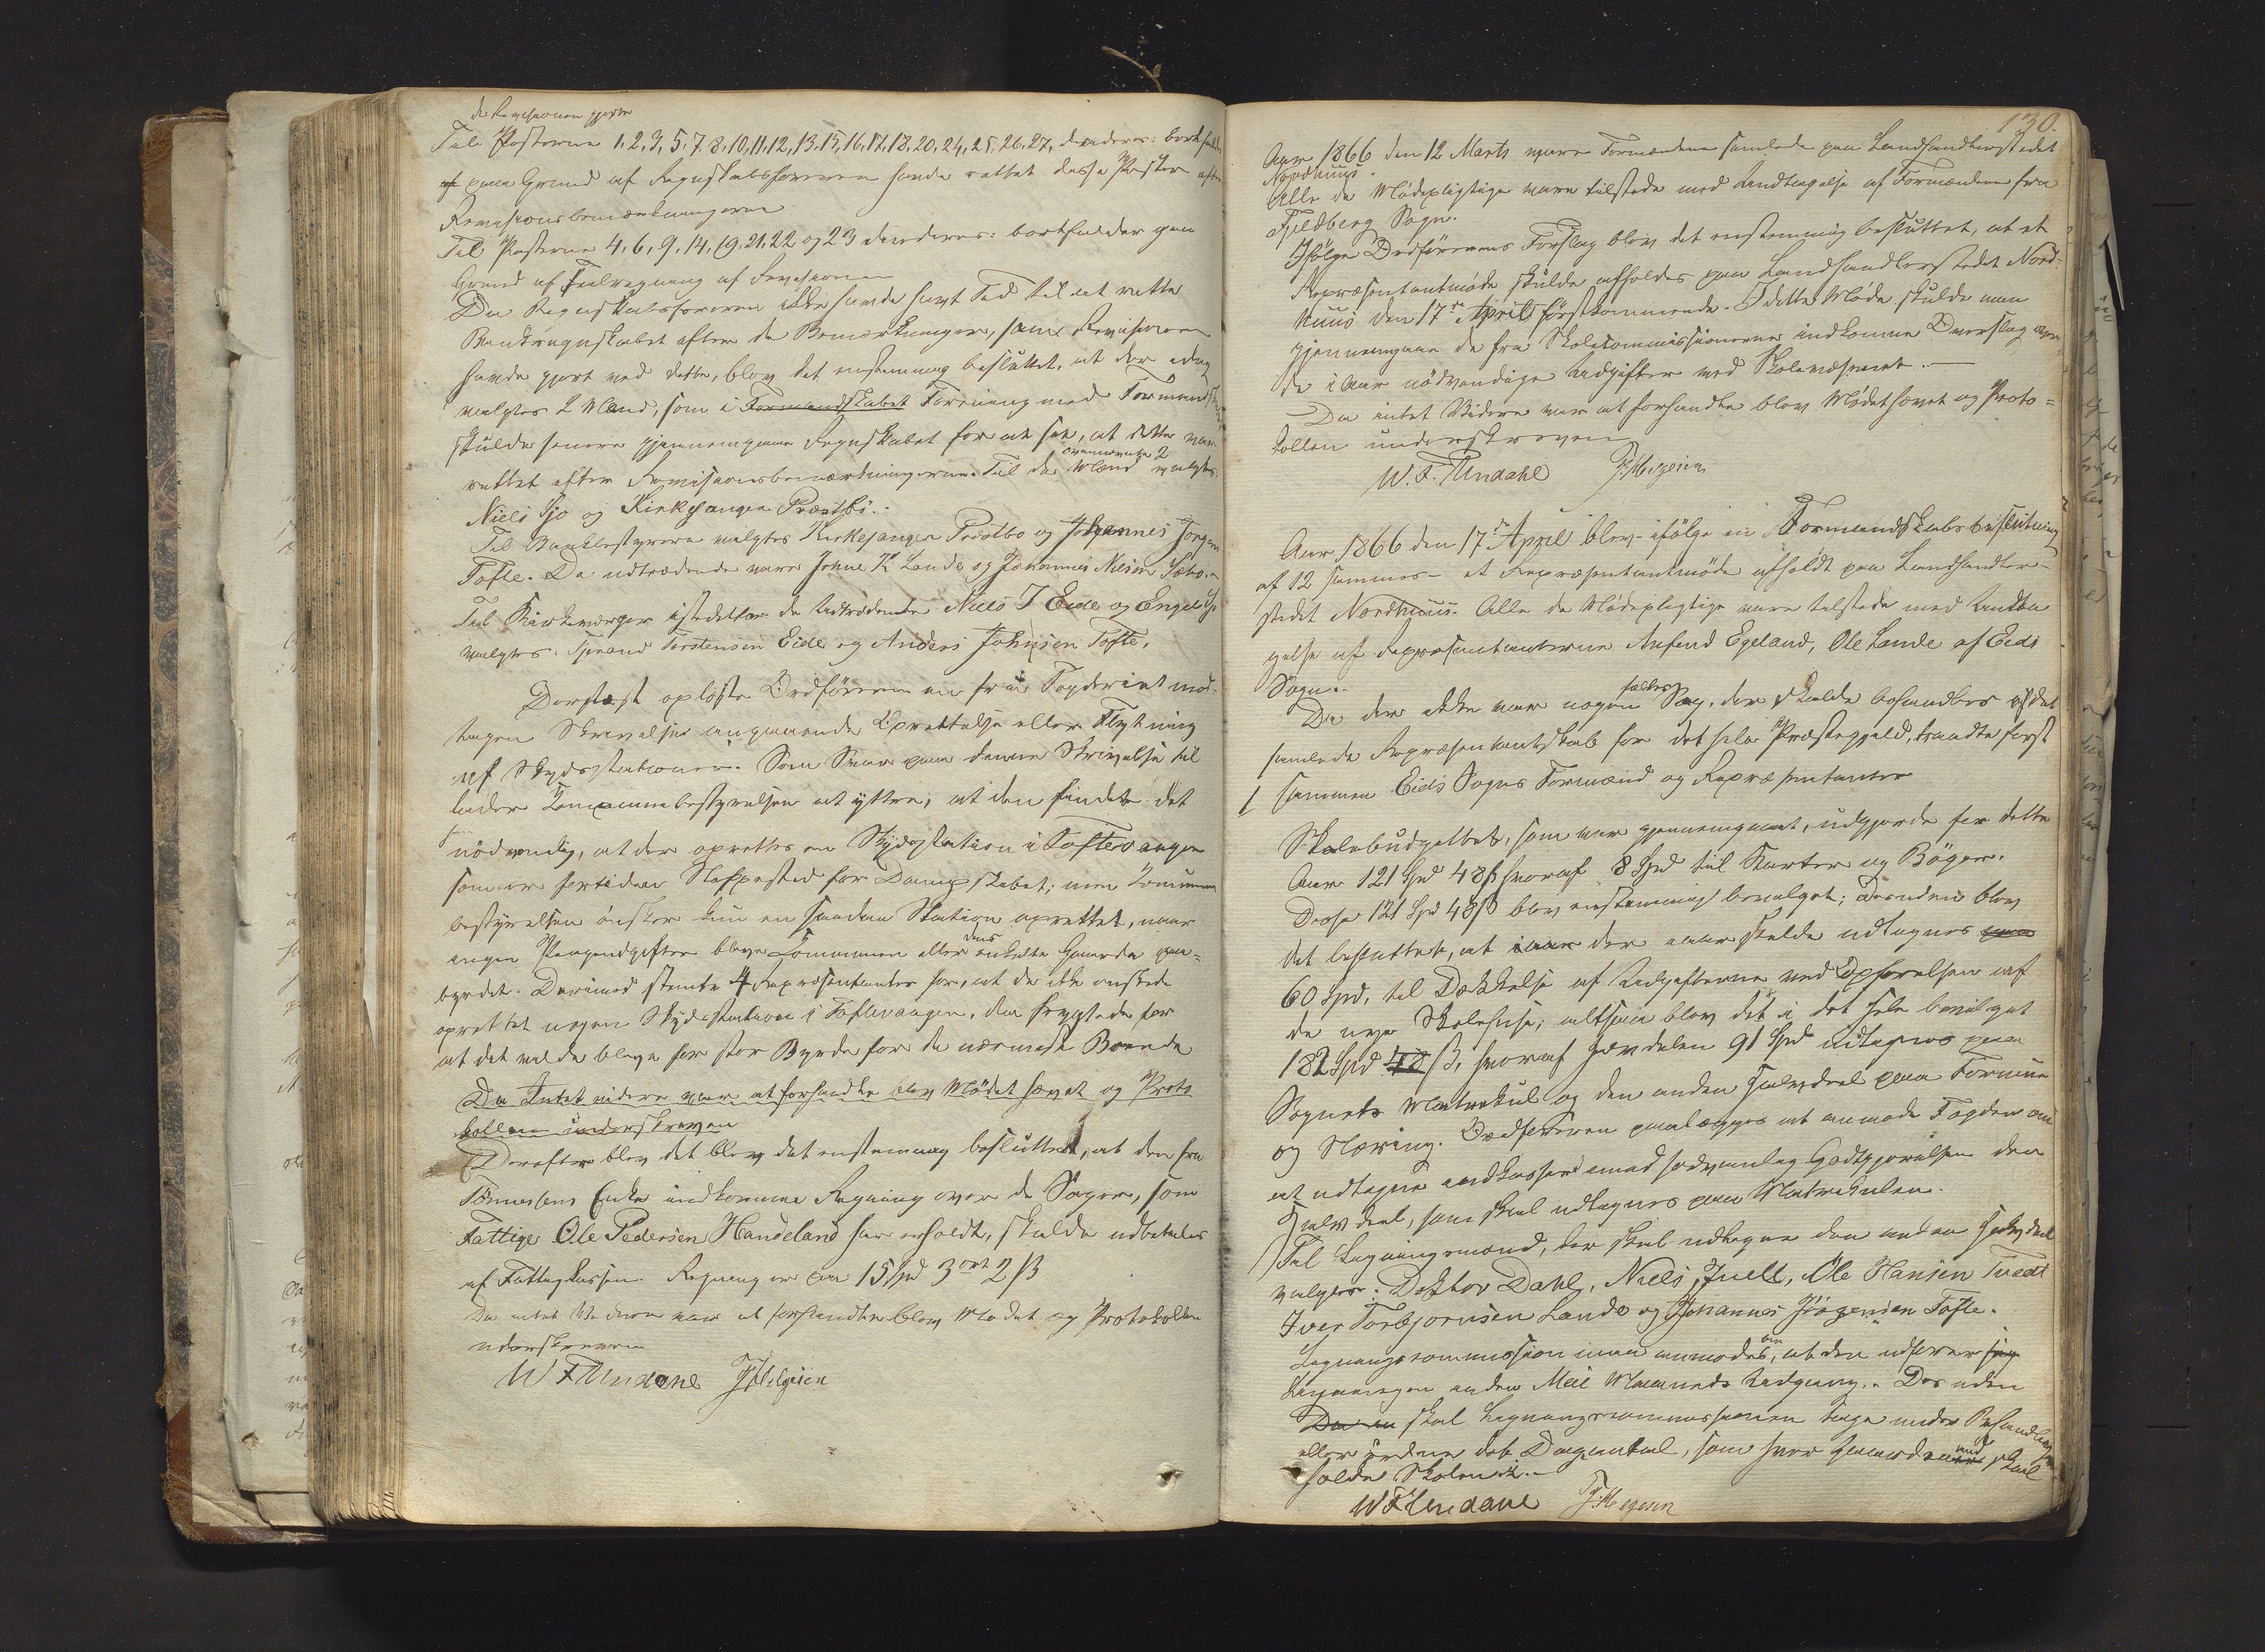 de Revisionen gjorte
Til Posterne 1, 2, 3, 5, 7, 8, 10, 11, 12, 13, 15, 16, 17, 18, 20, 24, 25, 26, 27, decideres: bortfalder
af paa Grund af Regnskabsføreren havde rettet disse Poster efter
Revisionsbemærkningerne
Til Posterne 4, 6, 9, 14, 19, 21, 22 og 23 decideres: bortfalder paa
Grund af Feilregning af Revisionen
Da Regnskabsføreren ikke havde havt Tid til at rette
Bankregnskabet efter de Bemærkninger, som Revisionen
havde gjort ved dette, blev det enstemmig besluttet, at der idag
valgtes 2 Mænd, som i Formandskabet Forening med Formandskabet
skulde senere gjennemgaae Regnskabet for at see, at dette var
rettet efter Revisionsbemærkningerne. Til de ovennævnte 2 Mænd valgtes
Niels Sjo og Kirkesanger Præstbö.
Til Bankbestyrere valgtes Kirkesanger Prestbo og Johannes Jørgen
Tofte. De udtrædende vare Johne K Lande og Johannes Nilsen Sæbo.
Til Kirkeværger istedetfor de Udtrædende Niels J Eide og Engel Sjo
valgtes: Sjovand Torstensen Eide og Anders Johnsen Tofte.
Dernæst oplæste Ordföreren en fra Fogderiet mod-
tagen Skrivelse angaaende Oprettelse eller Flytning
af Skydsstationer. Som Svar paa denne Skrivelse til
lader Communebestyrelsen at yttre, at den finder det
nödvendig, at der oprettes en Skydsstation i Toftevaagen
som er fortiden Stoppested for Dampskibet; men Commune
bestyrelsen ønsker kun en saadan Station oprettet, naar
ingen Pengeudgifter bleve Communen eller dens enkelte Gaarde paa-
byrdet. Derimod stemte 4 Repræsentanter for, at de ikke ønskede
oprettet nogen Skydsstation i Toftevaagen, da frygtede for
at det vilde blive for stor Byrde for de nærmeste Boende
Da Intet videre var at forhandle blev Mödet hævet og Proto
kollen underskreven
Derefter blev det blev det enstemmig besluttet, at den fra
Tönnesens Enke indkomne Regning over de Sager, som
Fattige Ole Pedersen Handeland har erholdt, skulde udbetales
af Fattigkassen. Regning er paa 15 Spd 3 ort 2 ß
Da intet videre var at forhandle blev Mødet og Protokollen
underskreven
W F Undahl JHelgesen
130.
Aar 1866 den 12 Marts vare Formændene samlede paa Landhandlerstedet
Nordhuus.
Alle de Mödepligtige vare tilstede med Undtagelse af Formændene fra
Fjeldberg Sogn.
Ifölge Ordförerens Forslag blev det enstemmig besluttet, at et
Repræsentantmöde skulde afholdes paa Landhandlerstedet Nord-
huus den 17de April förstkommende. I dette Möde skulde man
gjennemgaae de fra Skolecommissionerne indkomne Overslag over
de i Aar nödvendige Udgifter ved Skolevæsenet.
Da intet Videre var at forhandle blev Mödet hævet og Proto=
kollen underskreven
W. F. Undahl JHelgesen
Aar 1866 den 17de April blev ifölge en Formandskabsbeslutning
af 12 samme et Repræsentantmöde afholdt paa Landhandler-
stedet Nordhuus. Alle de Mödepligtige vare tilstede med Undta
gelse af Repræsentanterne Anfind Egeland, Ole Lande af Eids
Sogn.
Da der ikke var nogen fælles Sag, der skulde behandles af det
samlede Repræsentantskab for det hele Præstegjeld, traadte först
1 sammen Eids Sogns Formænd og Repræsentanter
Skolebudgettet, som var gjennemgaaet, udgjorde for dette
Aar 121 Spd 48 ß hvoraf 8 Spd til Karter og Böger.
Disse 121 Spd 48 ß blev enstemmig bevilget; desuden blev
det besluttet, at i aar der aar skulde udlignes paa
60 Spd, til Dækkelse af Udgifterne ved Opførelsen af
de nye Skolehuse; altsaa blev det i det hele bevilget
182 Spd 48 ß, hvoraf Halvdelen 91 Spd udlignes paa
Sognets Matrikul og den anden Halvdeel paa Formue
og Næring. Ordføreren paalægges at anmode Fogden om
at udligne indkassere imod sædvanlig Godtgjørelse den
Halvdeel, som skal udlignes paa Matrikulen.
Til Ligningsmænd, der skal udligne den anden Halvdeel
valgtes: Doktor Dahl, Niels Juell, Ole Hansen Tvedt
Iver Torbjørnsen Lande og Johannes Jörgensen Tofte.
Ligningscommission maa anmodes om, at den udfører sig
Ligningen inden Mai Maaneds Udgang. Des uden
Da en skal Ligningscommissionen tage under Behandling
eller ordne det Dagantal, som hver Gaard skal
holde Skolen i.
W F Undahl JHelgesen